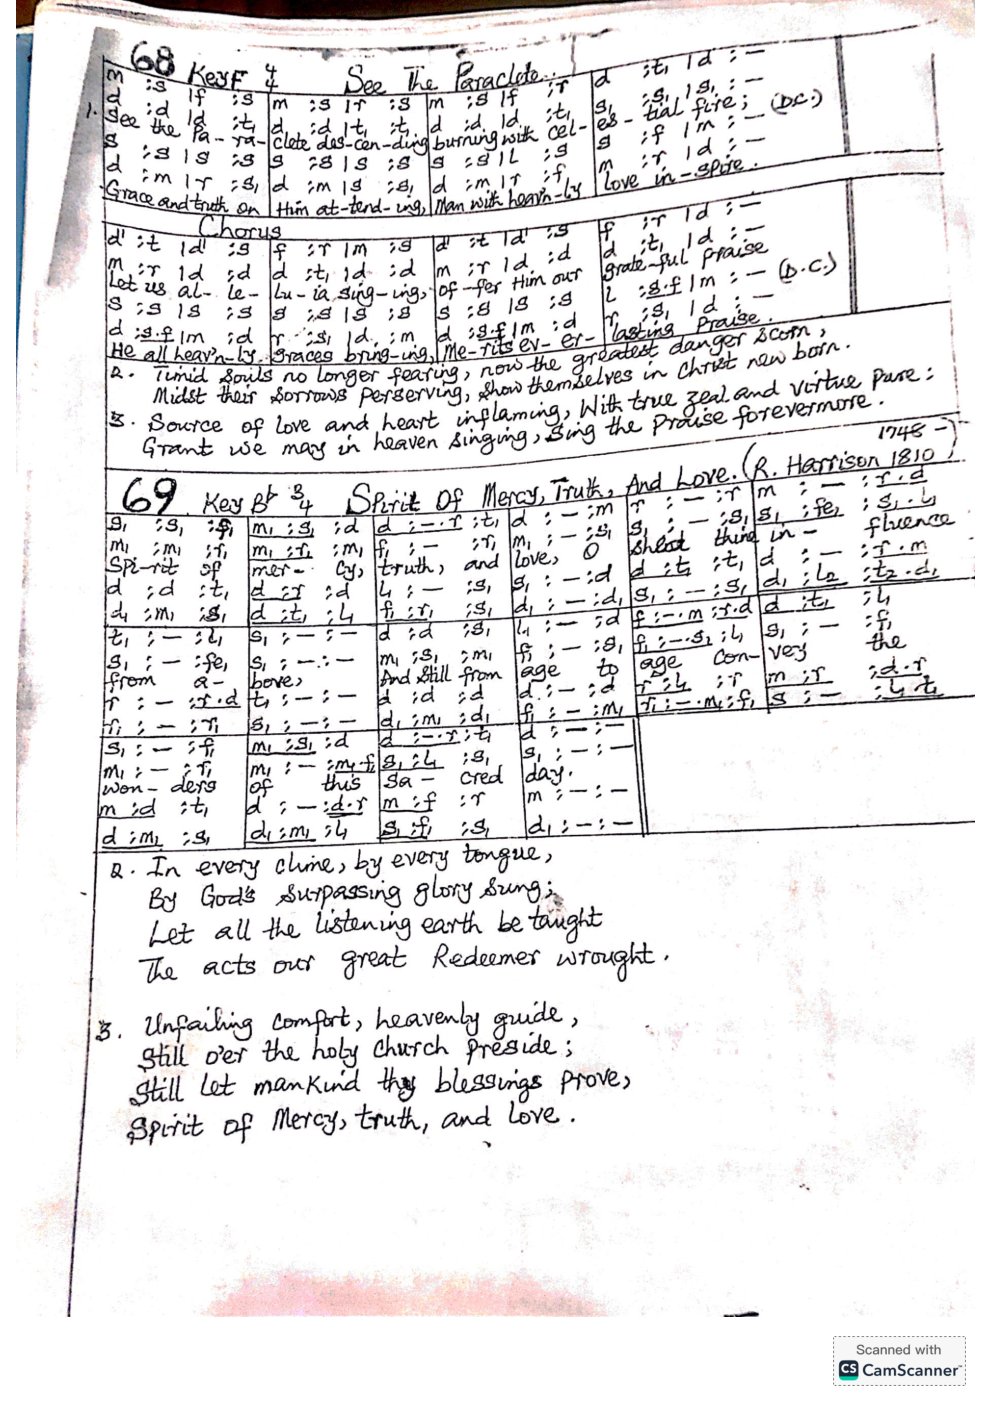 68 Key F 4/4 See The Paraclete.
m :s lf :s | m :s lr :s | m :s lf :r | d :t₁ ld :–
d :d ld :t₁ | d :d lt₁ :t₁ | d :d ld :t₁ | s₁ :s₁ ls₁ :–
1. See the Pa-ra-clete des-cen-ding burning with cel-es-tial fire; (D.C.)
s :s ls :s | s :s ls :s | s :s lL :s | s :f lm :–
d :m lr :s₁ | d :m ls :s₁ | d :m lr :f₁ | m :r ld :–
Grace and truth on Him at-tend-ing, Man with heav'n-ly love in-spire.
Chorus
d' :t ld' :s | f :r lm :s | d' :t ld' :s | f :r ld :–
m :r ld :d | d :t₁ ld :d | m :r ld :d | d :t₁ ld :–
Let us al-le-lu-ia sing-ing, of-fer Him our grate-ful praise
s :s ls :s | s :s ls :s | s :s ls :s | L :s.f lm :– (D.C.)
d :s.f lm :d | r :s₁ ld :m | d :s.f lm :d | r :s₁ ld :–
He all heav'n-ly graces bring-ing, Me-rits ev-er-lasting Praise.
2. Timid Souls no longer fearing, now the greatest danger scorn,
Midst their sorrows perserving, show themselves in Christ new born.
3. Source of love and heart inflaming, With true zeal and virtue pure:
Grant we may in heaven singing, sing the Praise forevermore.
1748 –
69 Key B♭ 3/4 Spirit Of Mercy, Truth, And Love. (R. Harrison 1810)
s₁ :s₁ :f₁ | m₁ :s₁ :d | d :–.r :t₁ | d :– :m | r :– :r | m :– :r.d
m₁ :m₁ :r₁ | m₁ :r₁ :m₁ | f₁ :– :r₁ | m₁ :– :s₁ | s₁ :– :s₁ | s₁ :fe₁ :s₁.L₁
Spi-rit of mer-cy, truth, and love, O shed thine in-fluence
d :d :t₁ | d :r :d | L₁ :– :s₁ | s₁ :– :d | d :t₁ :t₁ | d :– :r.m
d₁ :m₁ :s₁ | d :t₁ :L₁ | f₁ :r₁ :s₁ | d₁ :– :d₁ | s₁ :– :s₁ | d₁ :L₂ :t₂.d₁
t₁ :– :L₁ | s₁ :– :– | d :d :s₁ | L₁ :– :d | f :–.m :r.d | d :t₁ :L₁
s₁ :– :fe₁ | s₁ :– :– | m₁ :s₁ :m₁ | f₁ :– :s₁ | f₁ :–.s₁ :L₁ | s₁ :– :f₁
from a-bove, And still from age to age con-vey the
r :– :r.d | t₁ :– :– | d :d :d | d :– :d | r :L₁ :r | m :r :d.r
r₁ :– :r₁ | s₁ :– :– | d₁ :m₁ :d₁ | f₁ :– :m₁ | r₁ :–.m₁ :f₁ | s :– :L₁ t₁
s₁ :– :f₁ | m₁ :s₁ :d | d :–.r :t₁ | d :– :–
m₁ :– :r₁ | m₁ :– :m₁.f₁ | s₁ :L₁ :s₁ | s₁ :– :–
won-ders of this sa-cred day.
m :d :t₁ | d :– :d.r | m :f :r | m :– :–
d :m₁ :s₁ | d₁ :m₁ :L₁ | s₁ :f₁ :s₁ | d₁ :– :–
2. In every clime, by every tongue,
By God's surpassing glory sung;
Let all the listening earth be taught
The acts our great Redeemer wrought.
3. Unfailing comfort, heavenly guide,
Still o'er the holy Church preside;
Still let mankind thy blessings prove,
Spirit of Mercy, truth, and love.
Scanned with
CS CamScanner